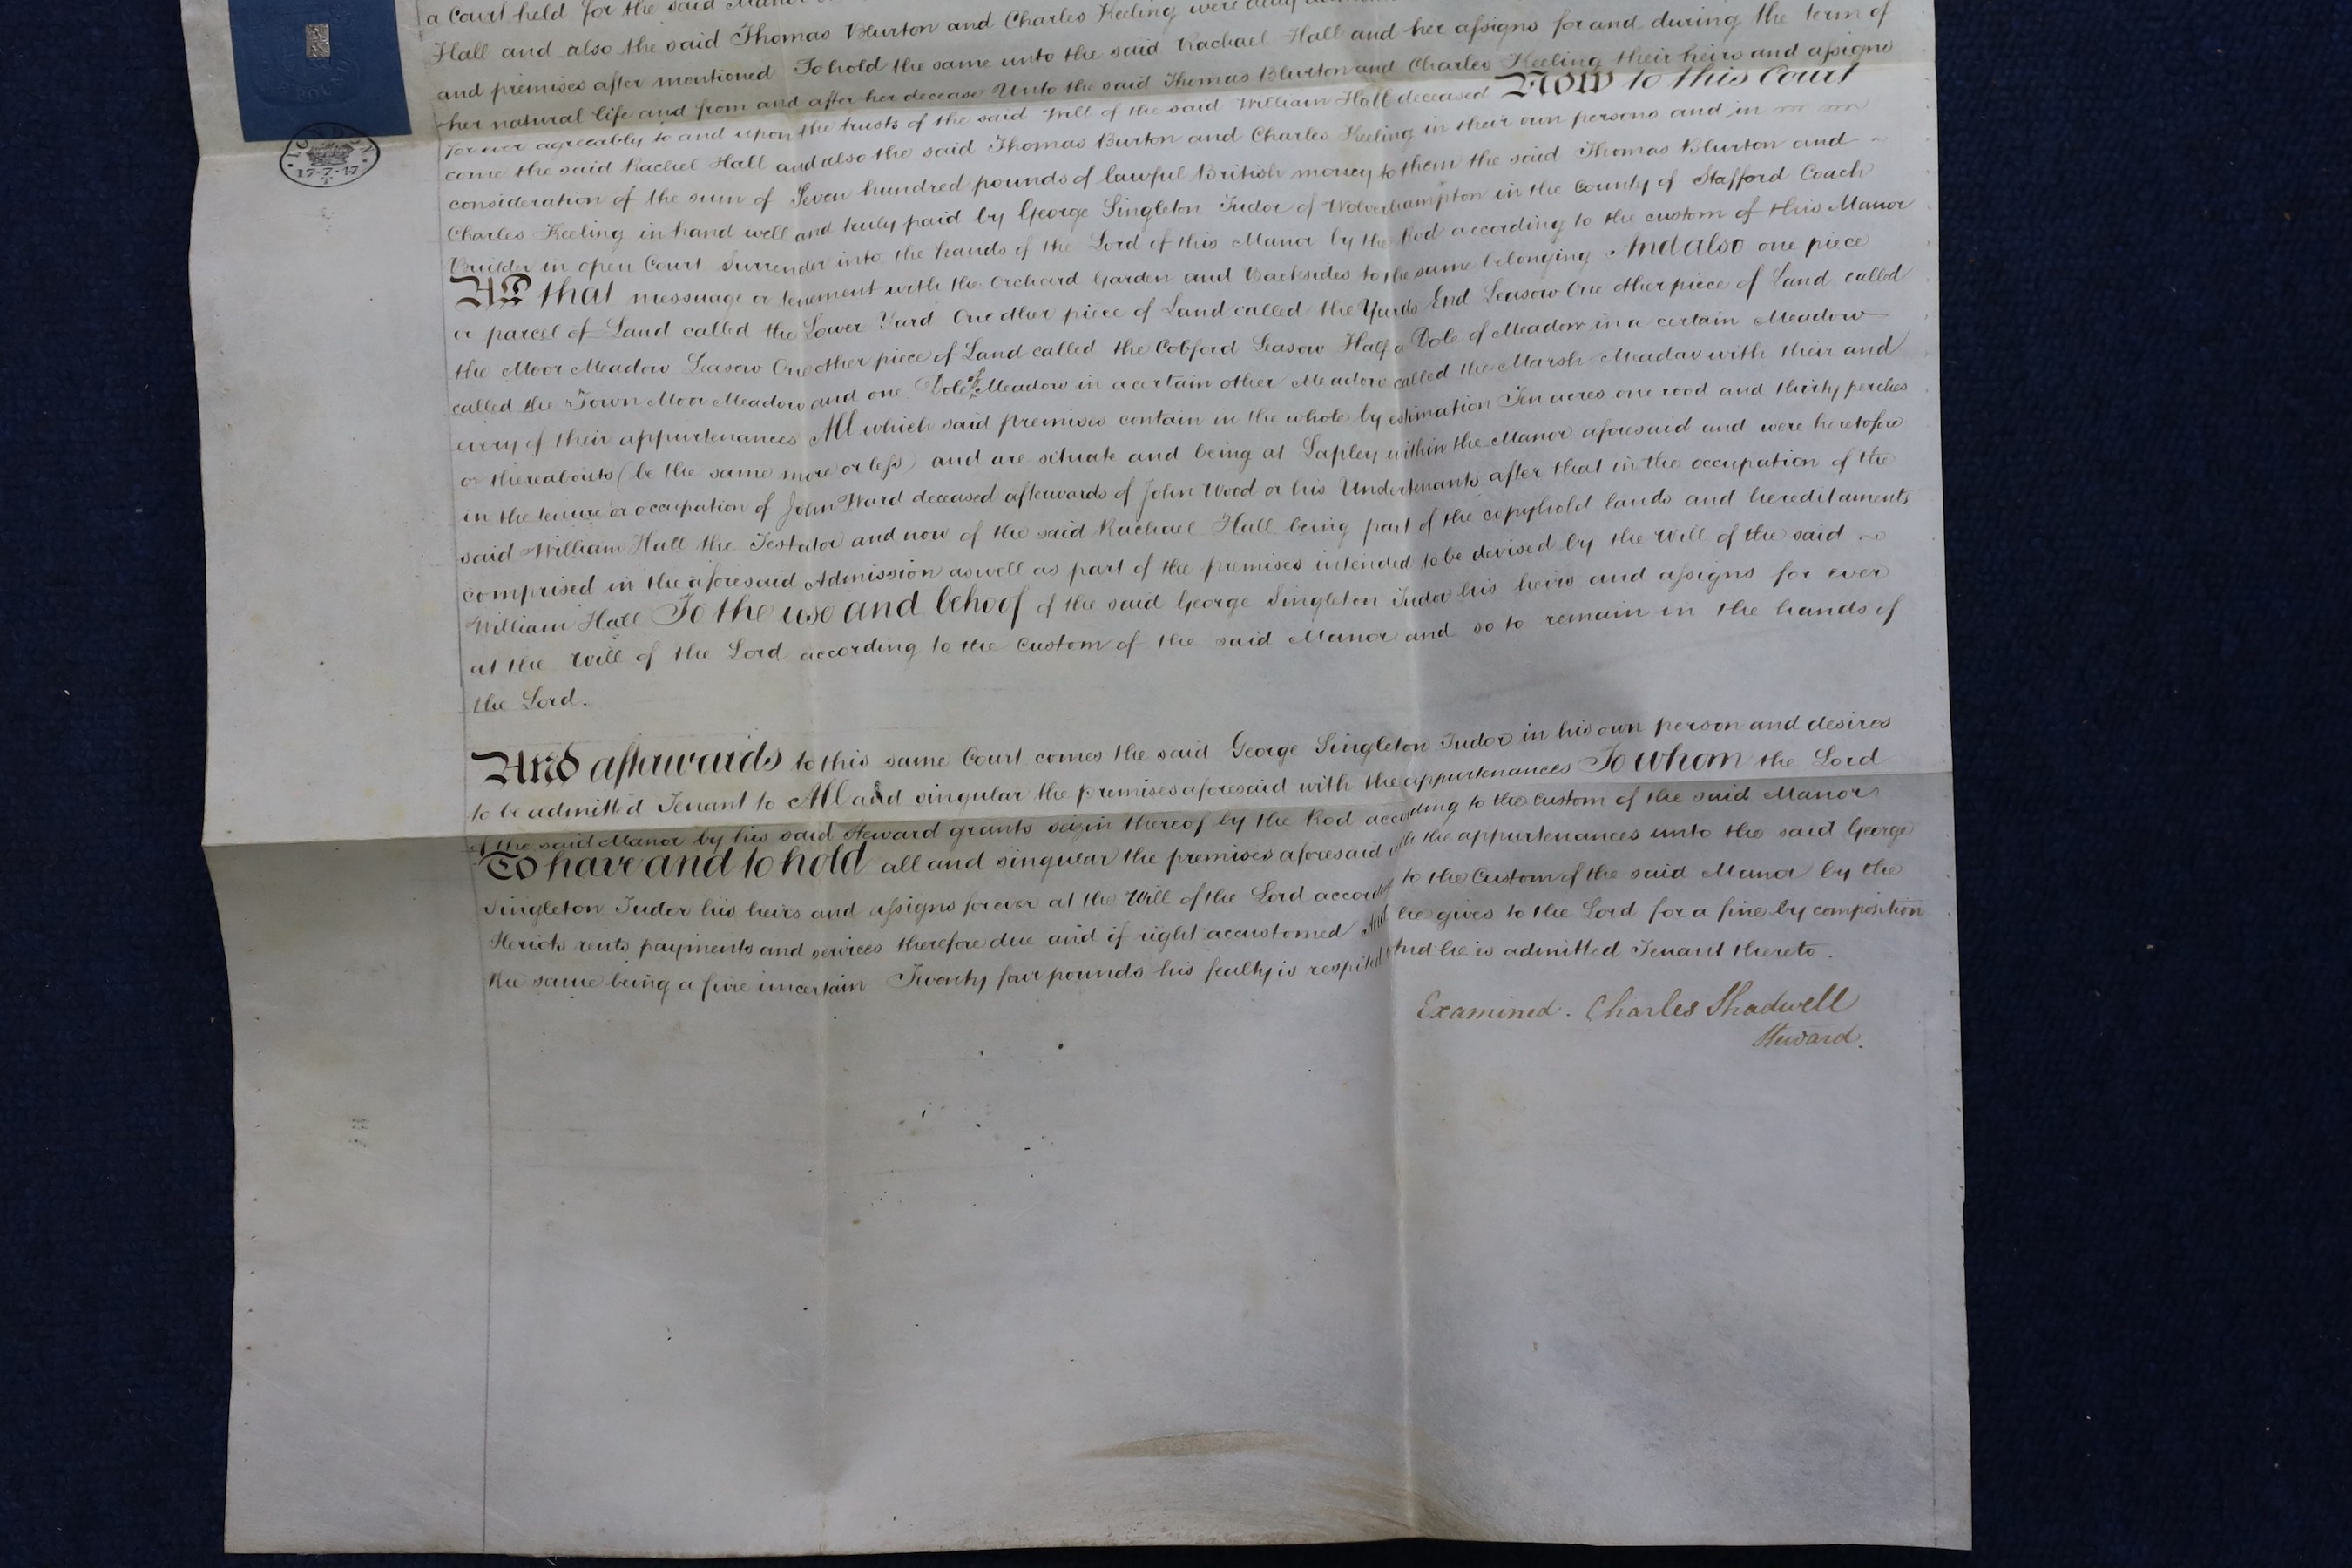 a Court held for the said Manor
Hall and also the said Thomas Blurton and Charles Keeling were duly
and premises after mentioned To hold the same unto the said Rachael Hall and her assigns for and during the term of
her natural life and from and after her decease Unto the said Thomas Blurton and Charles Keeling their heirs and assigns
for ever agreeably to and upon the trusts of the said Will of the said William Hall deceased Now to this Court
come the said Rachel Hall and also the said Thomas Burton and Charles Keeling in their own persons and in
consideration of the sum of Seven hundred pounds of lawful British money to them the said Thomas Blurton and
Charles Keeling in hand well and truly paid by George Singleton Tudor of Wolverhampton in the County of Stafford Coach
Builder in open Court Surrender into the hands of the Lord of this Manor by the Rod according to the custom of this Manor
All that messuage or tenement with the Orchard Garden and Backsides to the same belonging And also one piece
or parcel of Land called the Lower Yard One other piece of Land called the Yards End Leasow One other piece of Land called
the Moor Meadow Leasow One other piece of Land called the Cobford Leasow Half a Dole of Meadow in a certain Meadow
called the Town Moor Meadow and one Dole of Meadow in a certain other Meadow called the Marsh Meadow with their and
every of their appurtenances All which said premises contain in the whole by estimation Ten acres one rood and thirty perches
or thereabouts (be the same more or less) and are situate and being at Lapley within the Manor aforesaid and were heretofore
in the tenure or occupation of John Ward deceased afterwards of John Wood or his Undertenants after that in the occupation of the
said William Hall the Testator and now of the said Rachael Hall being part of the copyhold lands and hereditaments
comprised in the aforesaid Admission as well as part of the premises intended to be devised by the Will of the said
William Hall To the use and behoof of the said George Singleton Tudor his heirs and assigns for ever
at the Will of the Lord according to the Custom of the said Manor and so to remain in the hands of
the Lord.
And afterwards to this same Court comes the said George Singleton Tudor in his own person and desires
to be admitted Tenant to All and singular the premises aforesaid with the appurtenances To whom the Lord
of the said Manor by his said Steward grants seizin thereof by the Rod according to the Custom of the said Manor
To have and to hold all and singular the premises aforesaid with the appurtenances unto the said George
Singleton Tudor his heirs and assigns forever at the Will of the Lord according to the Custom of the said Manor by the
Heriots rents payments and services therefore due and if right accustomed And he gives to the Lord for a fine by composition
the same being a fine uncertain Twenty four pounds his fealty is respited And he is admitted Tenant thereto.
Examined. Charles Shadwell
Steward.
LONDON
17-7-47